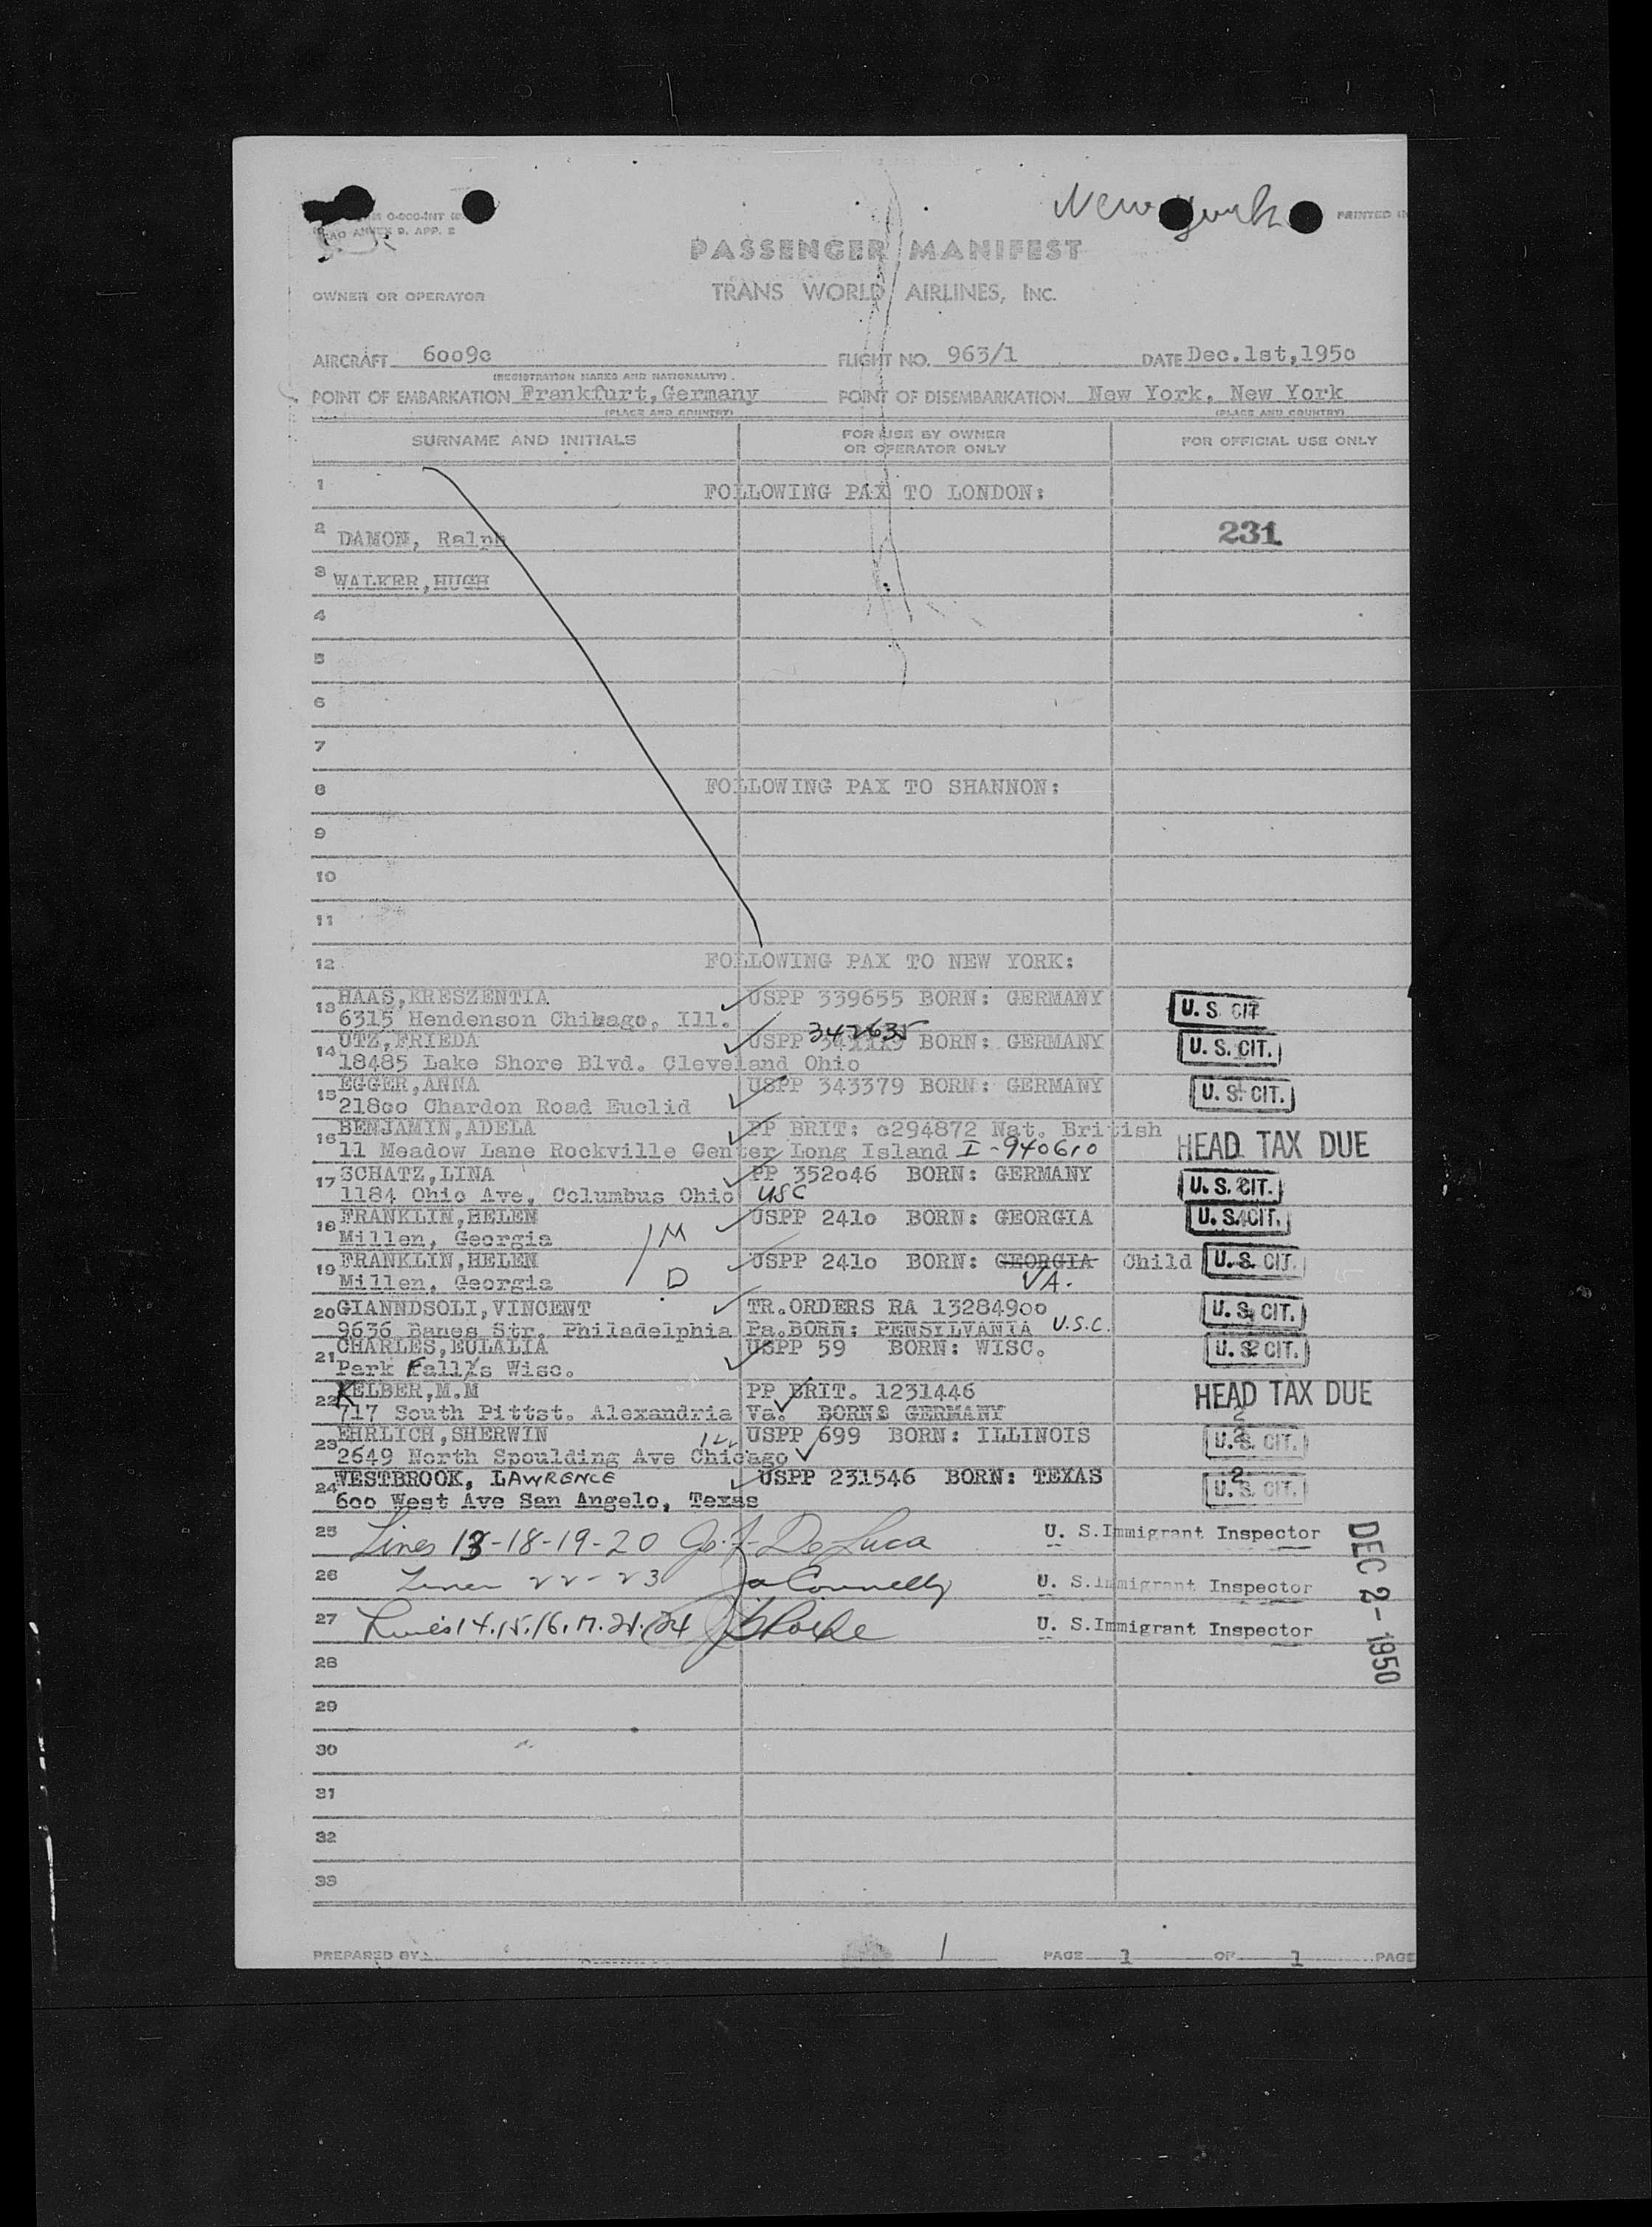 New York
PRINTED IN
ICAO ANNEX 9, APP. E
PASSENGER MANIFEST
OWNER OR OPERATOR TRANS WORLD AIRLINES, INC.
AIRCRAFT 6oo9c FLIGHT NO. 963/1 DATE Dec.1st,195o
(REGISTRATION MARKS AND NATIONALITY)
POINT OF EMBARKATION Frankfurt,Germany POINT OF DISEMBARKATION New York, New York
(PLACE AND COUNTRY) (PLACE AND COUNTRY)
SURNAME AND INITIALS FOR USE BY OWNER OR OPERATOR ONLY FOR OFFICIAL USE ONLY
1 FOLLOWING PAX TO LONDON:
2 DAMON, Ralph 231
3 WALKER,HUGH
4
5
6
7
8 FOLLOWING PAX TO SHANNON:
9
10
11
12 FOLLOWING PAX TO NEW YORK:
13 HAAS,KRESZENTIA USPP 339655 BORN: GERMANY U. S. CIT
6315 Hendenson Chikago, Ill.
14 UTZ,FRIEDA USPP 342635 BORN: GERMANY U. S. CIT.
18485 Lake Shore Blvd. Cleveland Ohio
15 EGGER,ANNA USPP 343379 BORN: GERMANY U. S. CIT.
218oo Chardon Road Euclid
16 BENJAMIN,ADELA PP BRIT: o294872 Nat. British
11 Meadow Lane Rockville Center Long Island I-940610 HEAD TAX DUE
17 SCHATZ,LINA PP 352o46 BORN: GERMANY U. S. CIT.
1184 Ohio Ave, Columbus Ohio USC
18 FRANKLIN,HELEN USPP 241o BORN: GEORGIA U. S. CIT.
Millen, Georgia M
19 FRANKLIN,HELEN USPP 241o BORN: GEORGIA Child U. S. CIT.
Millen, Georgia D VA.
20 GIANNDSOLI,VINCENT TR.ORDERS RA 132849oo U. S. CIT.
9636 Banes Str. Philadelphia Pa.BORN: PENSILVANIA U.S.C.
21 CHARLES,EULALIA USPP 59 BORN: WISC. U. S. CIT.
Park Falls Wisc.
22 KELBER,M.M PP BRIT. 1231446 HEAD TAX DUE
717 South Pittst. Alexandria Va. BORN: GERMANY 2
23 EHRLICH,SHERWIN USPP 699 BORN: ILLINOIS U. S. CIT.
2649 North Spoulding Ave Chicago
24 WESTBROOK, LAWRENCE USPP 231546 BORN: TEXAS 2
6oo West Ave San Angelo, Texas U. S. CIT.
25 Lines 13-18-19-20 De Luca U. S.Immigrant Inspector
26 Lines 22-23 Connelly U. S.Immigrant Inspector
27 Lines 14.15.16.17.21.24 U. S.Immigrant Inspector
DEC 2-1950
28
29
30
31
32
33
PREPARED BY: PAGE 1 OF 1 PAGE